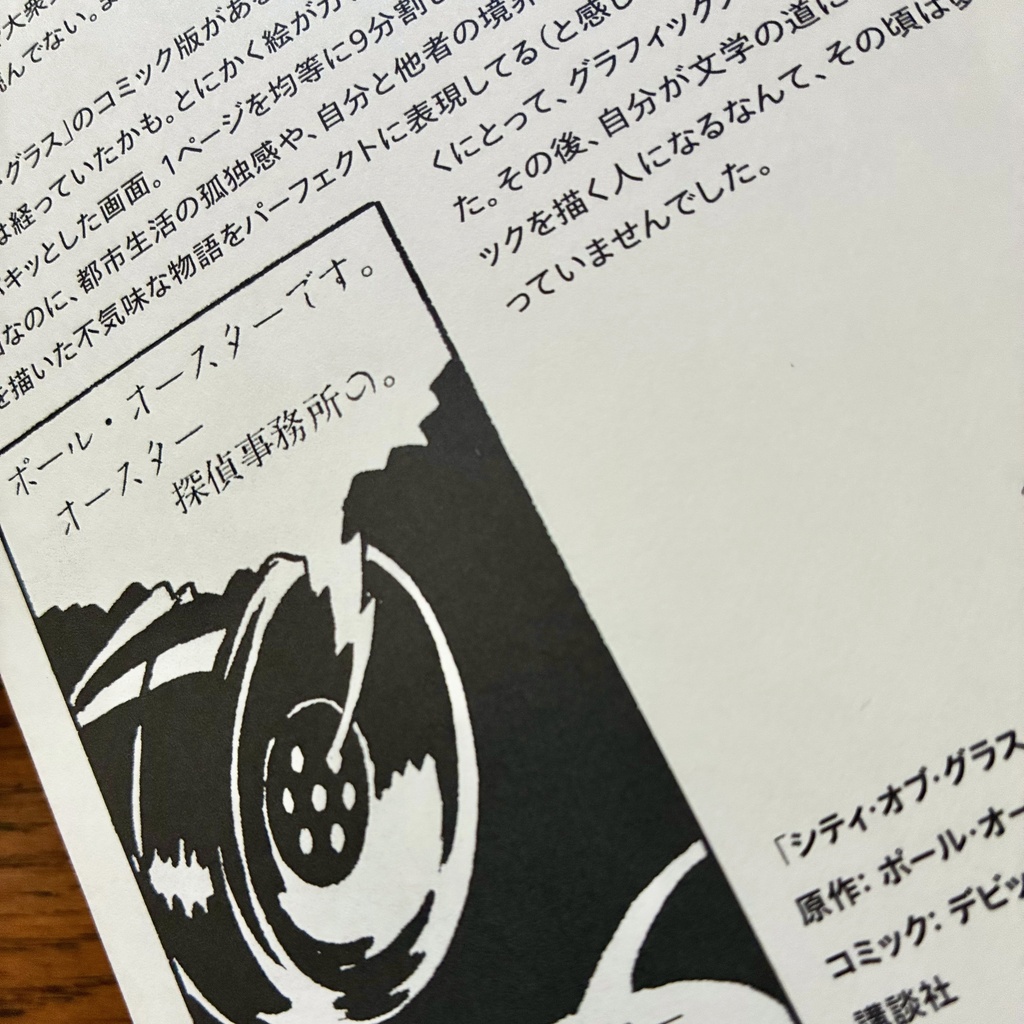 のコミック版があ
グラス」
は経っていたかも。とにかく絵が
キッとした画面。1ページを均等に9分割
なのに、都市生活の孤独感や、自分と他者の境界
を描いた不気味な物語をパーフェクトに表現してる(と感じ
くにとって、グラフィック
た。その後、自分が文学の道に
ックを描く人になるなんて、その頃は
っていませんでした。
ポール・オースターです。
オースター
探偵事務所の。
「シティ・オブ・グラス
原作: ポール・オー
コミック: デビッ
講談社